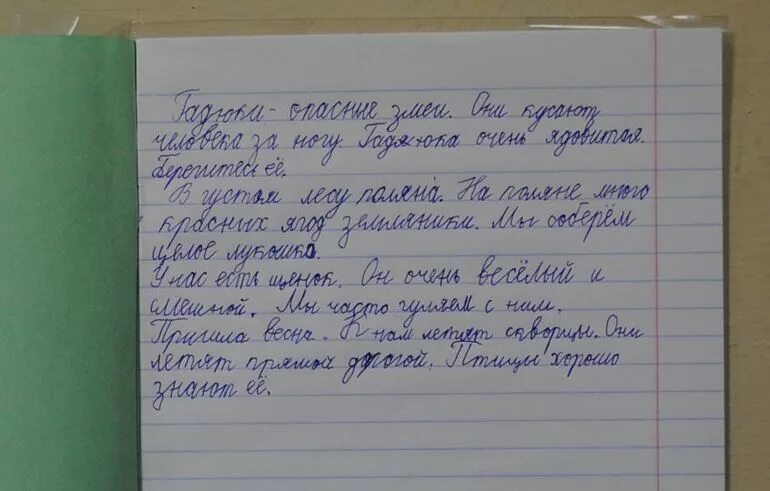 Гадюки - опасные змеи. Они кусают
человека за ногу. Гадюка очень ядовитая.
Берегитесь её.
В густом лесу поляна. На поляне много
красных ягод земляники. Мы соберём
целое лукошко.
У нас есть щенок. Он очень весёлый и
смешной. Мы часто гуляем с ним.
Пришла весна. К нам летят скворцы. Они
летят прямой дорогой. Птицы хорошо
знают её.